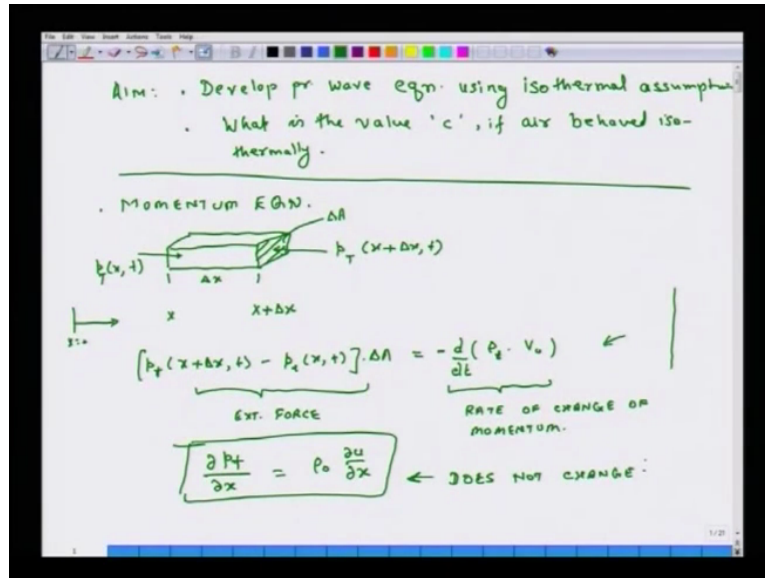 File Edit View Insert Actions Tools Help
AIM: . Develop pr wave eqn. using isothermal assumptus
. What is the value 'c', if air behaved iso-
thermally.
. MOMENTUM EQN.
ΔA
p_T(x,t)
p_T (x+Δx, t)
Δx
x
x+Δx
x=0
[p_t(x+Δx,t) - p_t(x,t)].ΔA = -d/dt (ρ_t . V_o)
EXT. FORCE
RATE OF CHANGE OF
MOMENTUM.
∂p_t/∂x = ρ_o ∂u/∂x ← DOES NOT CHANGE:
1/21